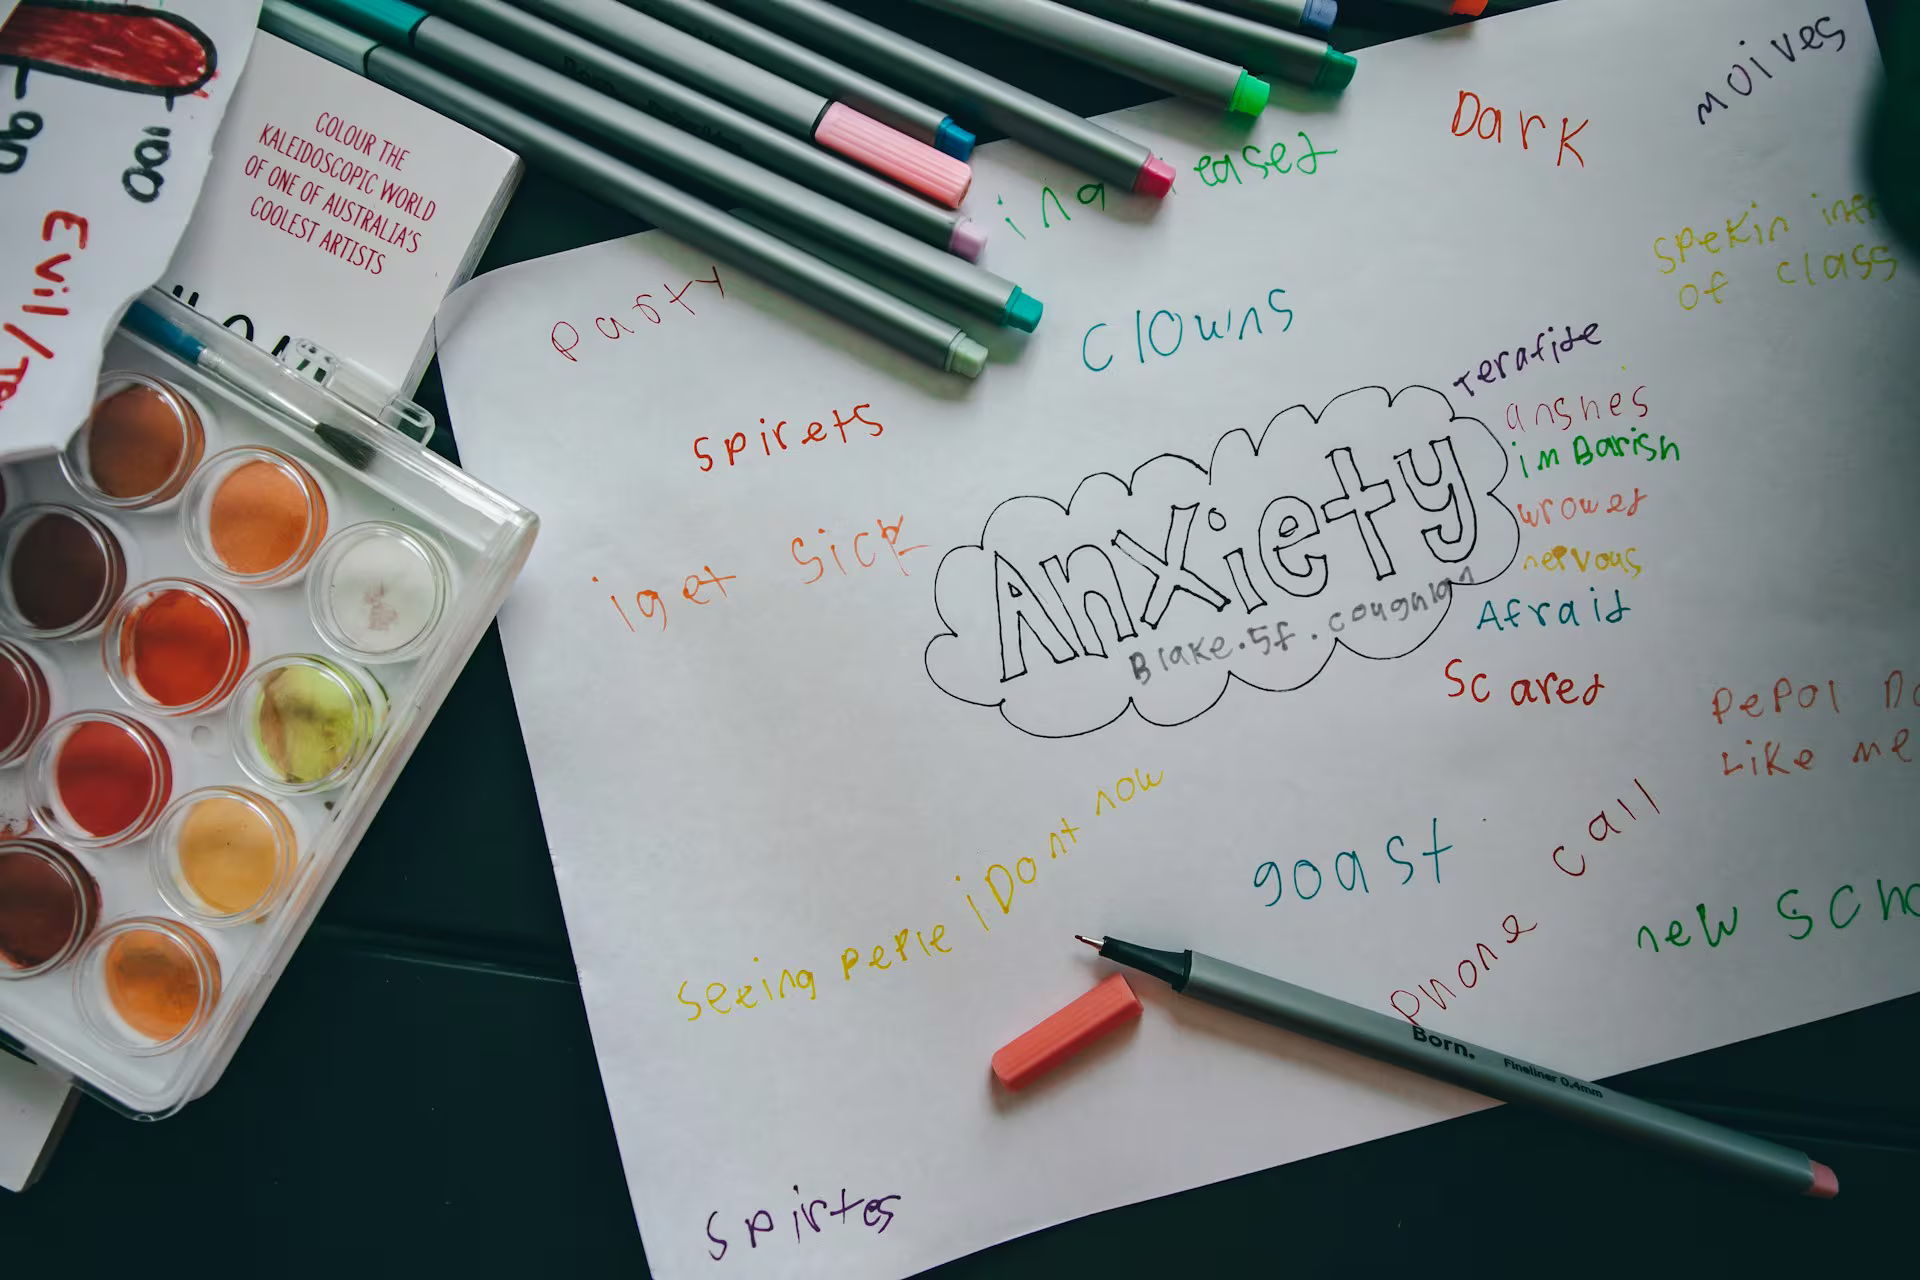 COLOUR THE
KALEIDOSCOPIC WORLD
OF ONE OF AUSTRALIA'S
COOLEST ARTISTS
Evil/
moives
Dark
eased
spekin
of class
Party
Clowns
Terafide
spirets
anshes
imBarish
wrowed
iget sick
nervous
Anxiety
Blake.5f.coughlan
Afraid
Scared
Pepol
Like me
seeing peple iDont now
goast
phone call
new
Born.
Fineliner 0.4mm
spirtes